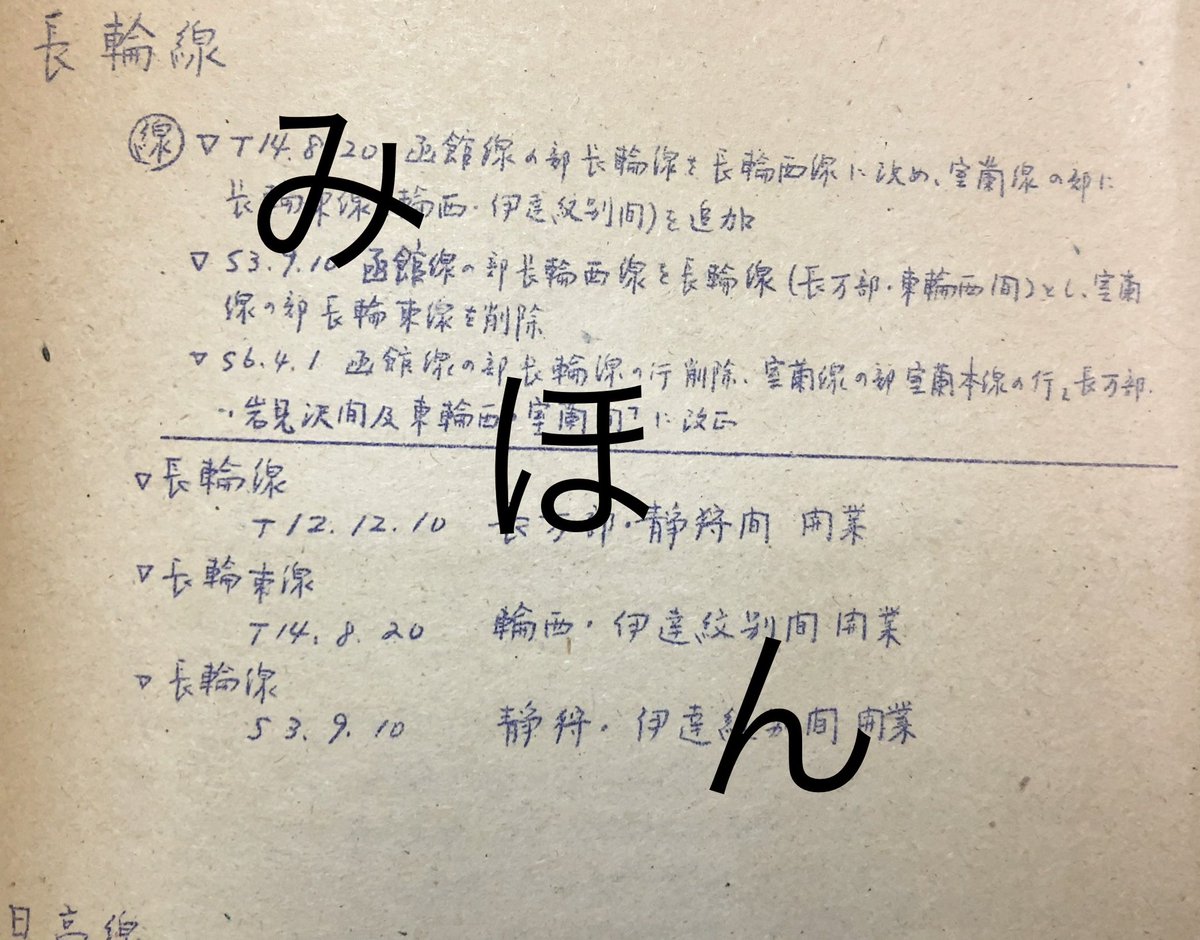 長輪線
線 ▽ T14.8.20 函館線の部長輪線を長輪西線に改め、室蘭線の部に
長輪東線(輪西・伊達紋別間)を追加
▽ S3.9.10 函館線の部長輪西線を長輪線(長万部・東輪西間)とし、室蘭
線の部長輪東線を削除
▽ S6.4.1 函館線の部長輪線の行削除、室蘭線の部室蘭本線の行を長万部・
岩見沢間及東輪西・室蘭間に改正
▽ 長輪線
T12.12.10 長万部・静狩間 開業
▽ 長輪東線
T14.8.20 輪西・伊達紋別間 開業
▽ 長輪線
S3.9.10 静狩・伊達紋別間 開業
日高線
みほん